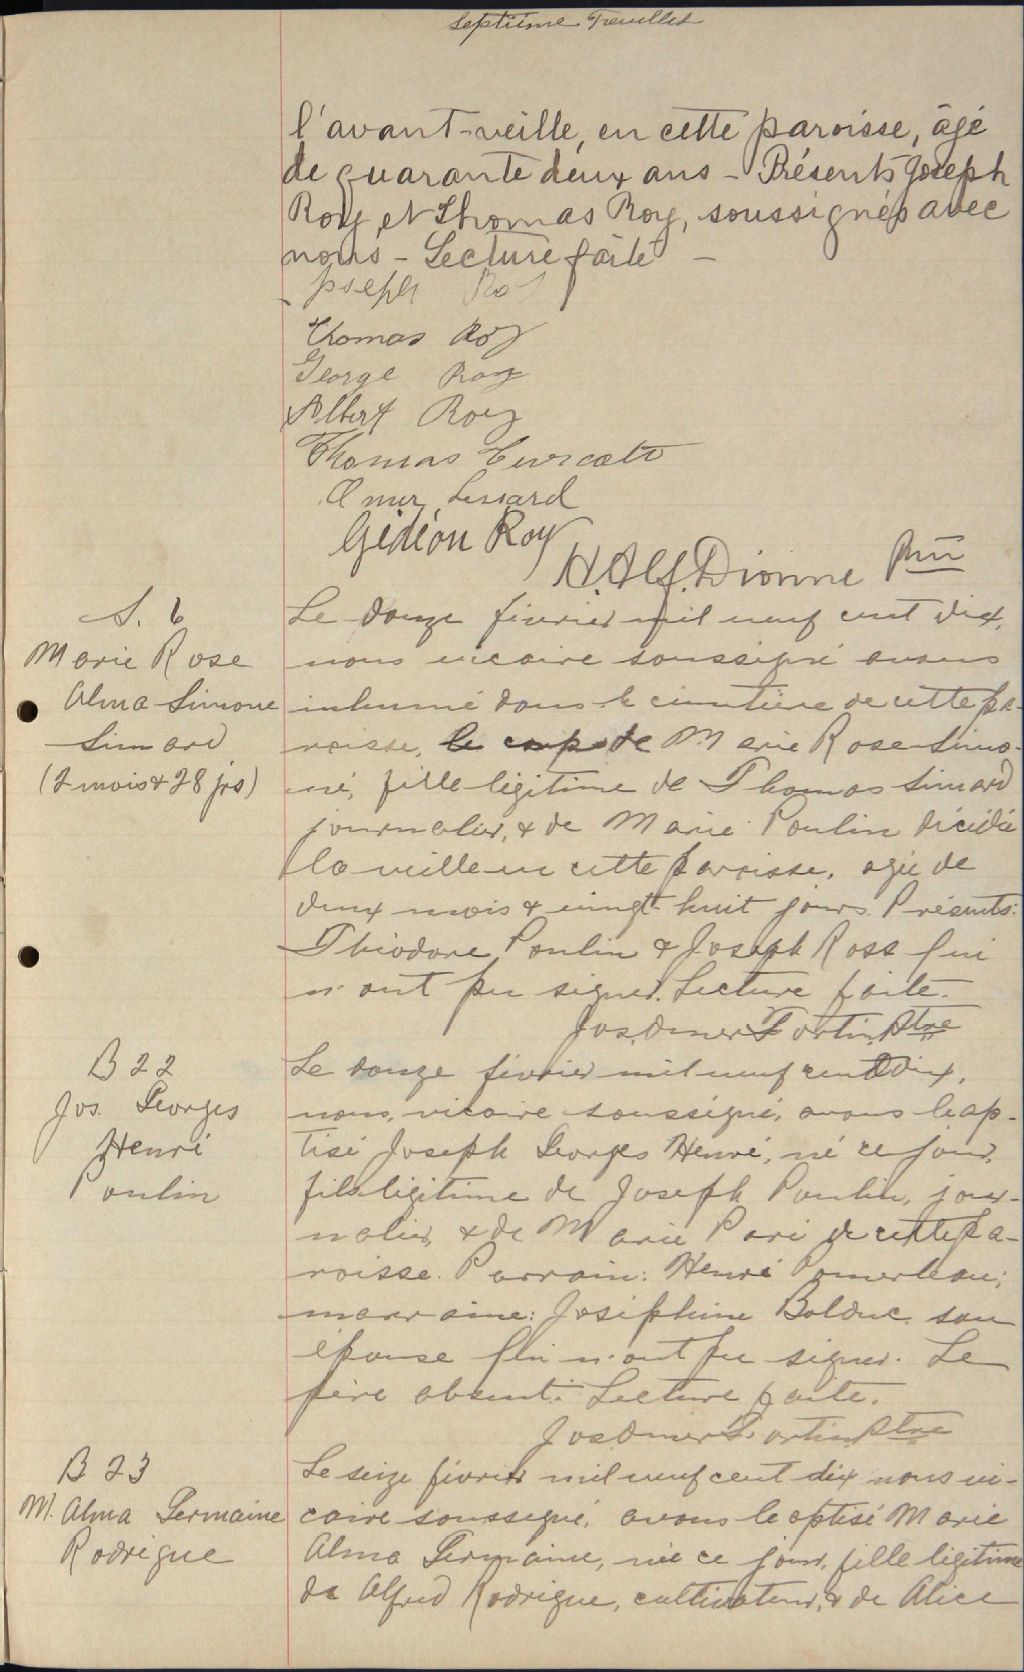 Septième Feuillet
l'avant-veille, en cette paroisse, âgé
de quarante deux ans - Présents Joseph
Roy, et Thomas Roy, soussignés avec
nous - Lecture faite -
Joseph Roy
Thomas Roy
George Roy
Albert Roy
Thomas
Omer Lessard
Gédéon Roy
H. Alf. Dionne Ptre
S. 6
Marie Rose
Alma Simone
Simard
(2 mois & 28 jrs)
Le douze février mil neuf cent dix,
nous vicaire soussigné avons
inhumé dans le cimetière de cette pa-
roisse, le corps de Marie Rose Simo-
ne, fille légitime de Thomas Simard
journalier, & de Marie Poulin décédée
la veille en cette paroisse, agée de
deux mois & vingt-huit jours. Présents:
Théodore Poulin & Joseph Ross qui
n'ont pu signer. Lecture faite.
Jos. Omer Fortin, Ptre
B 22
Jos. Georges
Henri
Poulin
Le douze février mil neuf cent dix,
nous, vicaire soussigné, avons bap-
tisé Joseph Georges Henri, né ce jour,
fils légitime de Joseph Poulin, jour-
nalier, & de Marie Paré de cette pa-
roisse. Parrain: Henri Pomerleau;
marraine: Joséphine Bolduc, son
épouse qui n'ont pu signer. Le
père absent. Lecture faite.
Jos. Omer Fortin Ptre
B 23
M. Alma Germaine
Rodrigue
Le seize février mil neuf cent dix nous vi-
caire soussigné, avons baptisé Marie
Alma Germaine, née ce jour, fille légitime
de Alfred Rodrigue, cultivateur, & de Alice